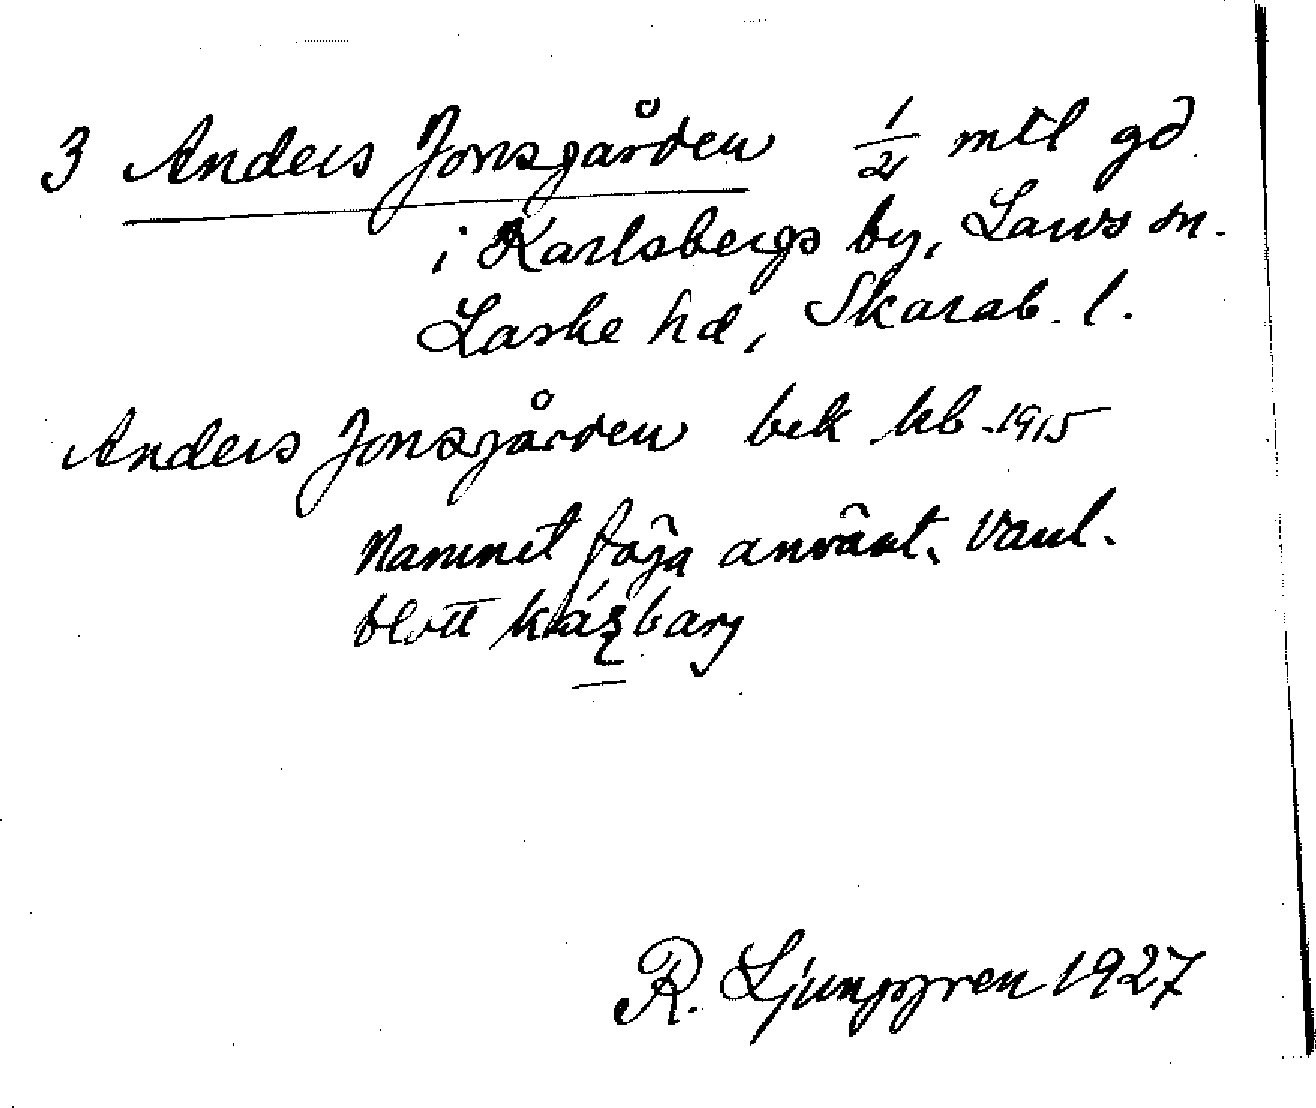 3 Anders Jonsgården 1/2 mtl gd
i Karlsbergs by, Laws sn.
Laske hd, Skarab. l.
Anders Jonsgården bek hb 1915
Namnet föga använt. Vanl.
blott
R. Ljunggren 1927